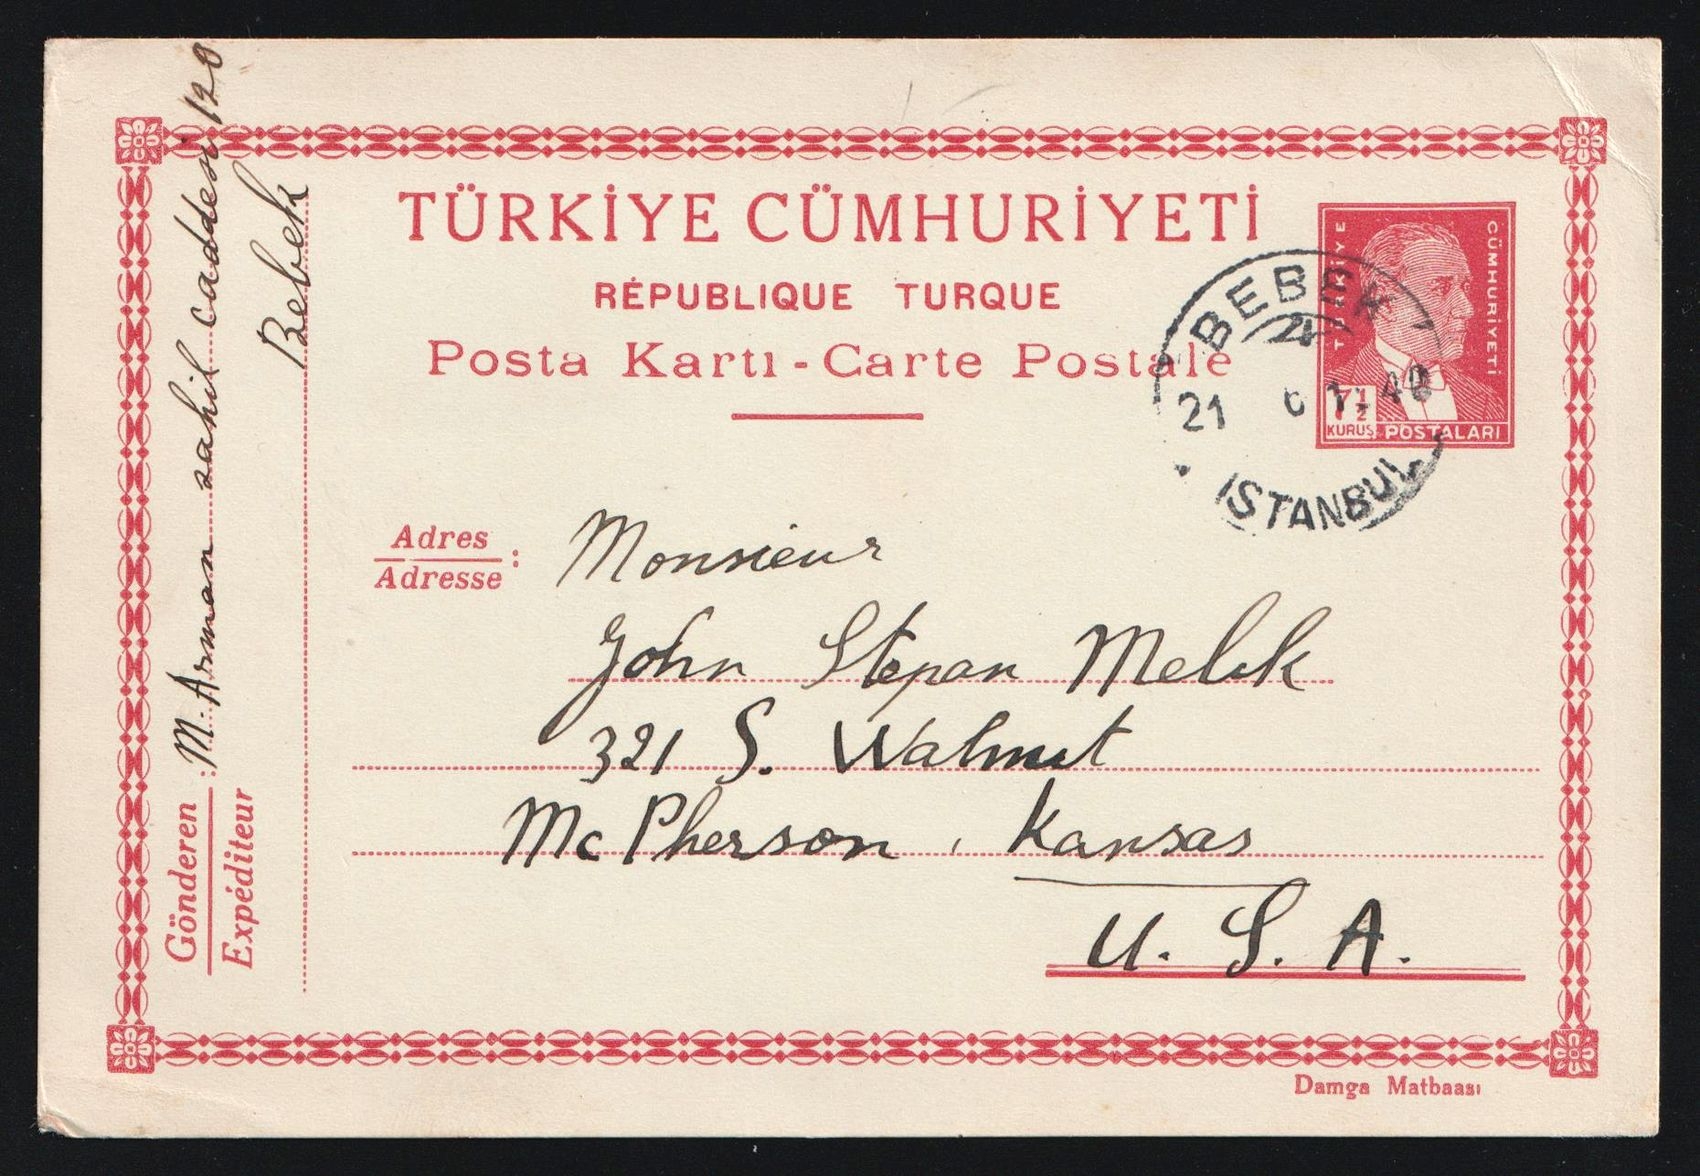 TÜRKİYE CÜMHURİYETİ
RÉPUBLIQUE TURQUE
Posta Kartı - Carte Postale
TÜRKİYE
CÜMHURİYETİ
7½
KURUŞ POSTALARI
BEBEK
21 6
ISTANBUL
Adres
Adresse :
Monsieur
John Stepan Melik
321 S. Walnut
McPherson, Kansas
U. S. A.
Gönderen
Expéditeur :
M. Arman sahil caddesi 120
Bebek
Damga Matbaası